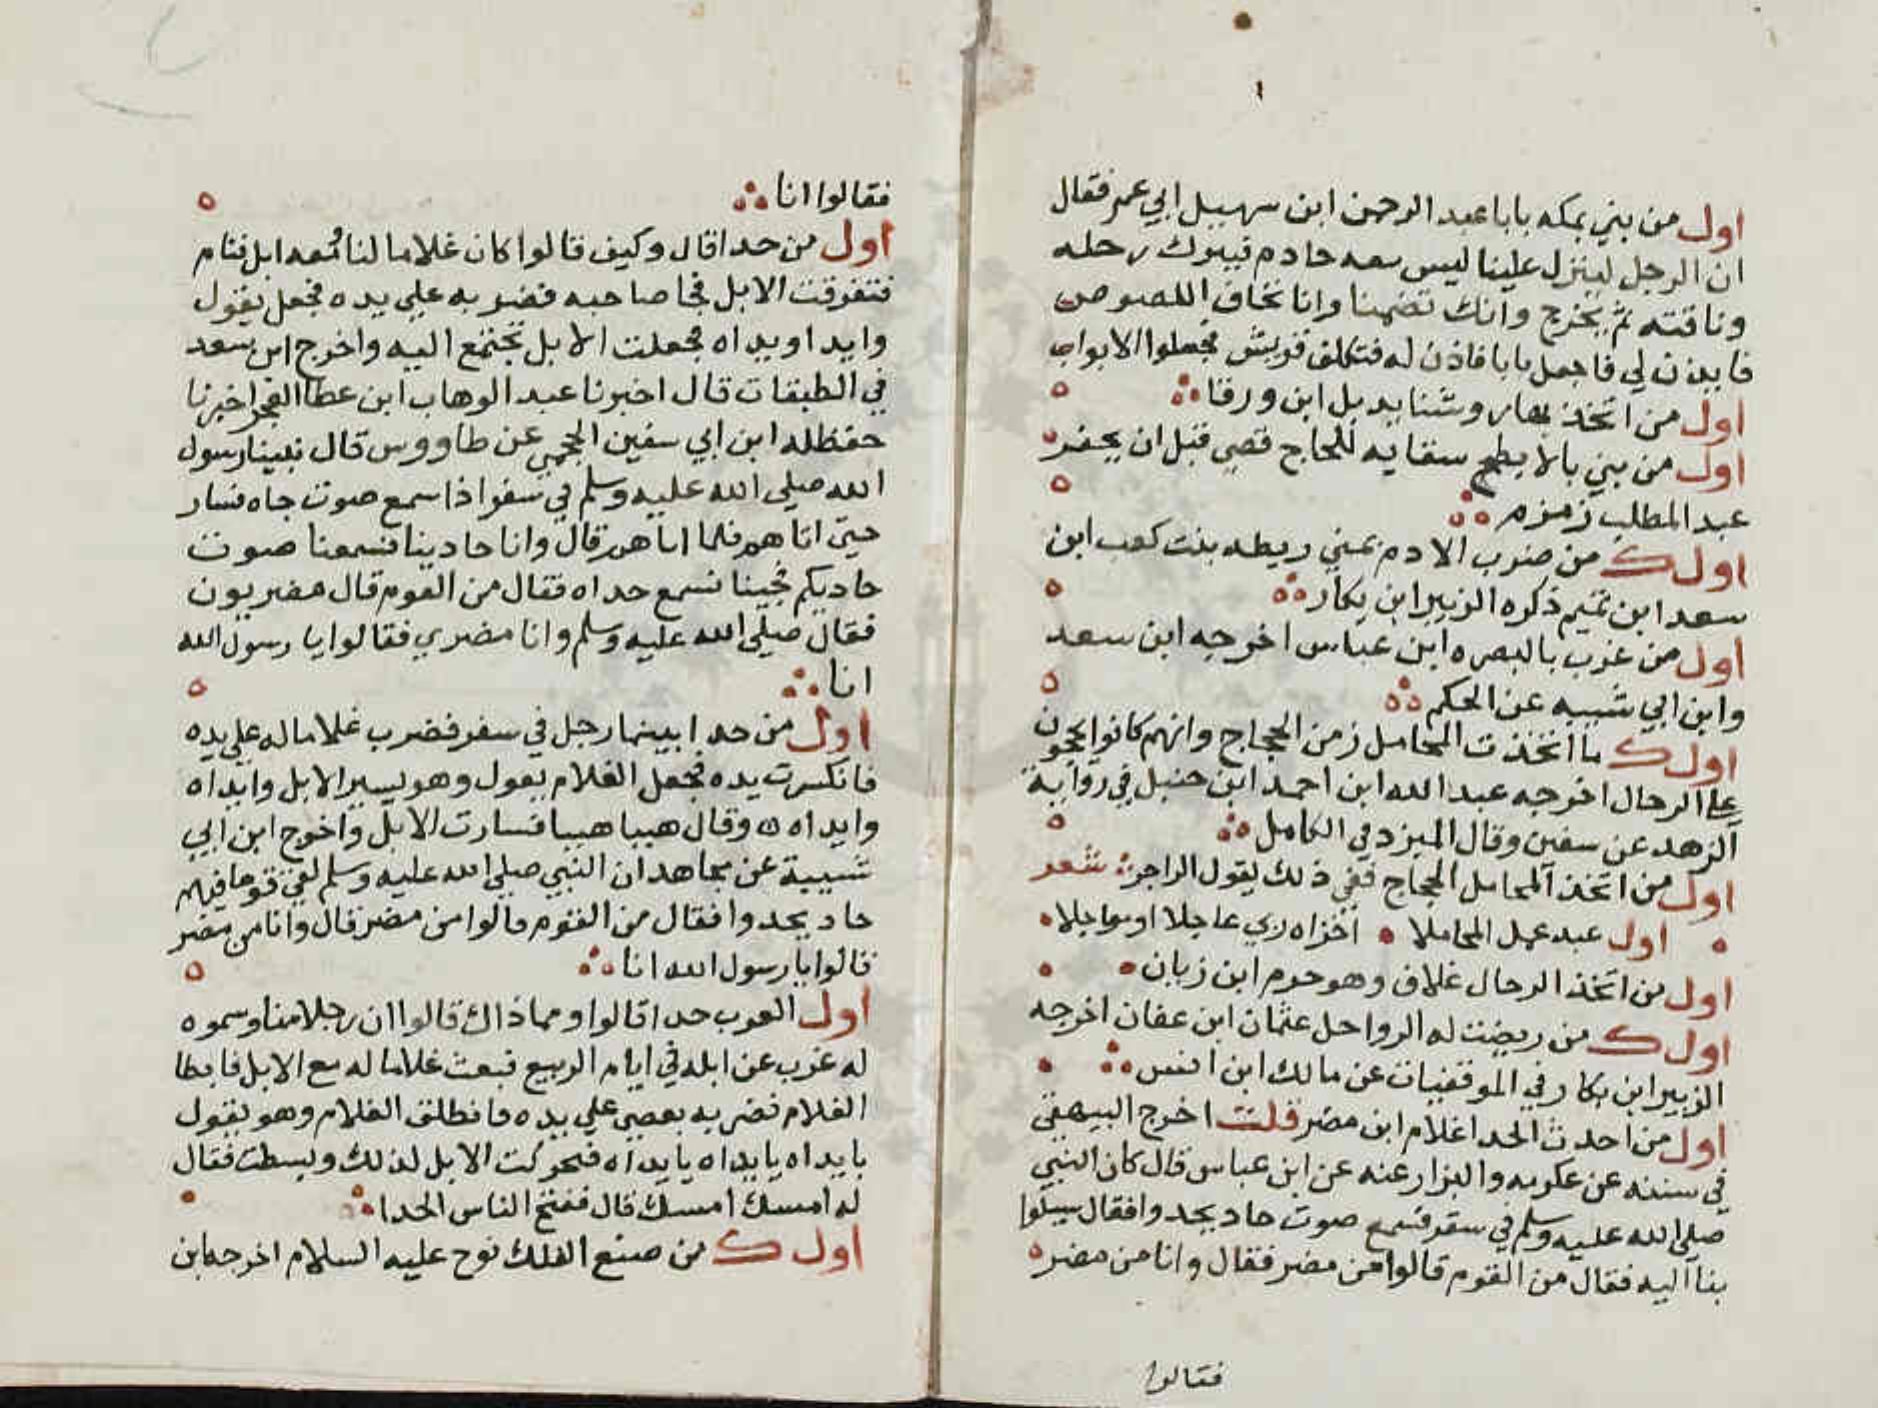 اول من بني بمكه بابا عبد الرحمن ابن سهيل ابي عمر فقال
ان الرجل لينزل علينا ليس معه خادم فيبوك رحله
وناقته ثم يخرج وانك تضمنا وانا نخاف اللصوص
فايذن لي فاجعل بابا فاذن له فتكلف قريش فجعلوا الابواب
اول من اتخذ بها روشنا بديل ابن ورقا
اول من بني بالابطح سقايه للحاج قصي قبل ان يحفر
عبد المطلب زمزم
اول ك من ضرب الادم بمني ريطه بنت كعب ابن
سعد ابن تميم ذكره الزبير ابن بكار
اول من عرب بالبصره ابن عباس اخرجه ابن سعد
وابن ابي شيبه عن الحكم
اول ك ما اتخذت المحامل زمن الحجاج وانهم كانوا يحجون
علي الرحال اخرجه عبد الله ابن احمد ابن حنبل في رواية
الزهد عن سفين وقال المبرد في الكامل
اول من اتخذ المحامل الحجاج ففي ذلك يقول الراجز شعر
اول عبد عمل المحاملا اخزاه ربي عاجلا او مواجلا
اول من اتخذ الرحال علاف وهو حرم ابن زبان
اول ك من ريضت له الرواحل عثمان ابن عفان اخرجه
الزبير ابن بكار في الموقفيات عن مالك ابن انس
اول من احدث الحدا غلام ابن مضر قلت اخرج البيهقي
في سننه عن عكرمه والبزار عنه عن ابن عباس قال كان النبي
صلي الله عليه وسلم في سفر فسمع صوت حاد يحدوا فقال سيلوا
بنا اليه فقال من القوم قالوا من مضر فقال وانا من مضر
فقالوا
فقالوا انا
اول من حدا قال وكيف قالوا كان غلاما لنا معه ابل فنام
فتفرقت الابل فجا صاحبه فضربه علي يده فجعل يقول
وايدا ويداه فجعلت الابل تجتمع اليه واخرج ابن سعد
في الطبقات قال اخبرنا عبد الوهاب ابن عطا العجر اخبرنا
حنظله ابن ابي سفين الجمحي عن طاووس قال نبينا رسول
الله صلي الله عليه وسلم في سفر اذا سمع صوت جاه فسار
حتي اتاهم فلما اتاهم قال وانا حادينا فسمعنا صوت
حاديكم فجينا نسمع حداه فقال من القوم قال مضريون
فقال صلي الله عليه وسلم وانا مضري فقالوا يا رسول الله
انا
اول من حدا بينما رجل في سفر فضرب غلاما له علي يده
فانكسرت يده فجعل الغلام يقول وهو يسير الابل وايداه
وايداه وقال هيبا هيبا فسارت الابل واخرج ابن ابي
شيبية عن مجاهد ان النبي صلي الله عليه وسلم لقي قوما فيهم
حاد يحدوا فقال من القوم قالوا من مضر قال وانا من مضر
قالوا يا رسول الله انا
اول العرب حدا قالوا ومما ذاك قالوا ان رجلا منا وسموه
له عزب عن ابله في ايام الربيع فبعث غلاما له مع الابل فابطا
الغلام فضربه بعصي علي يده فانطلق الغلام وهو يقول
يا يداه يا يداه يا يداه فتحركت الابل لذلك وبسطت فقال
له امسك امسك قال ففتح الناس الحدا
اول ك من صنع الفلك نوح عليه السلام اخرجه ابن